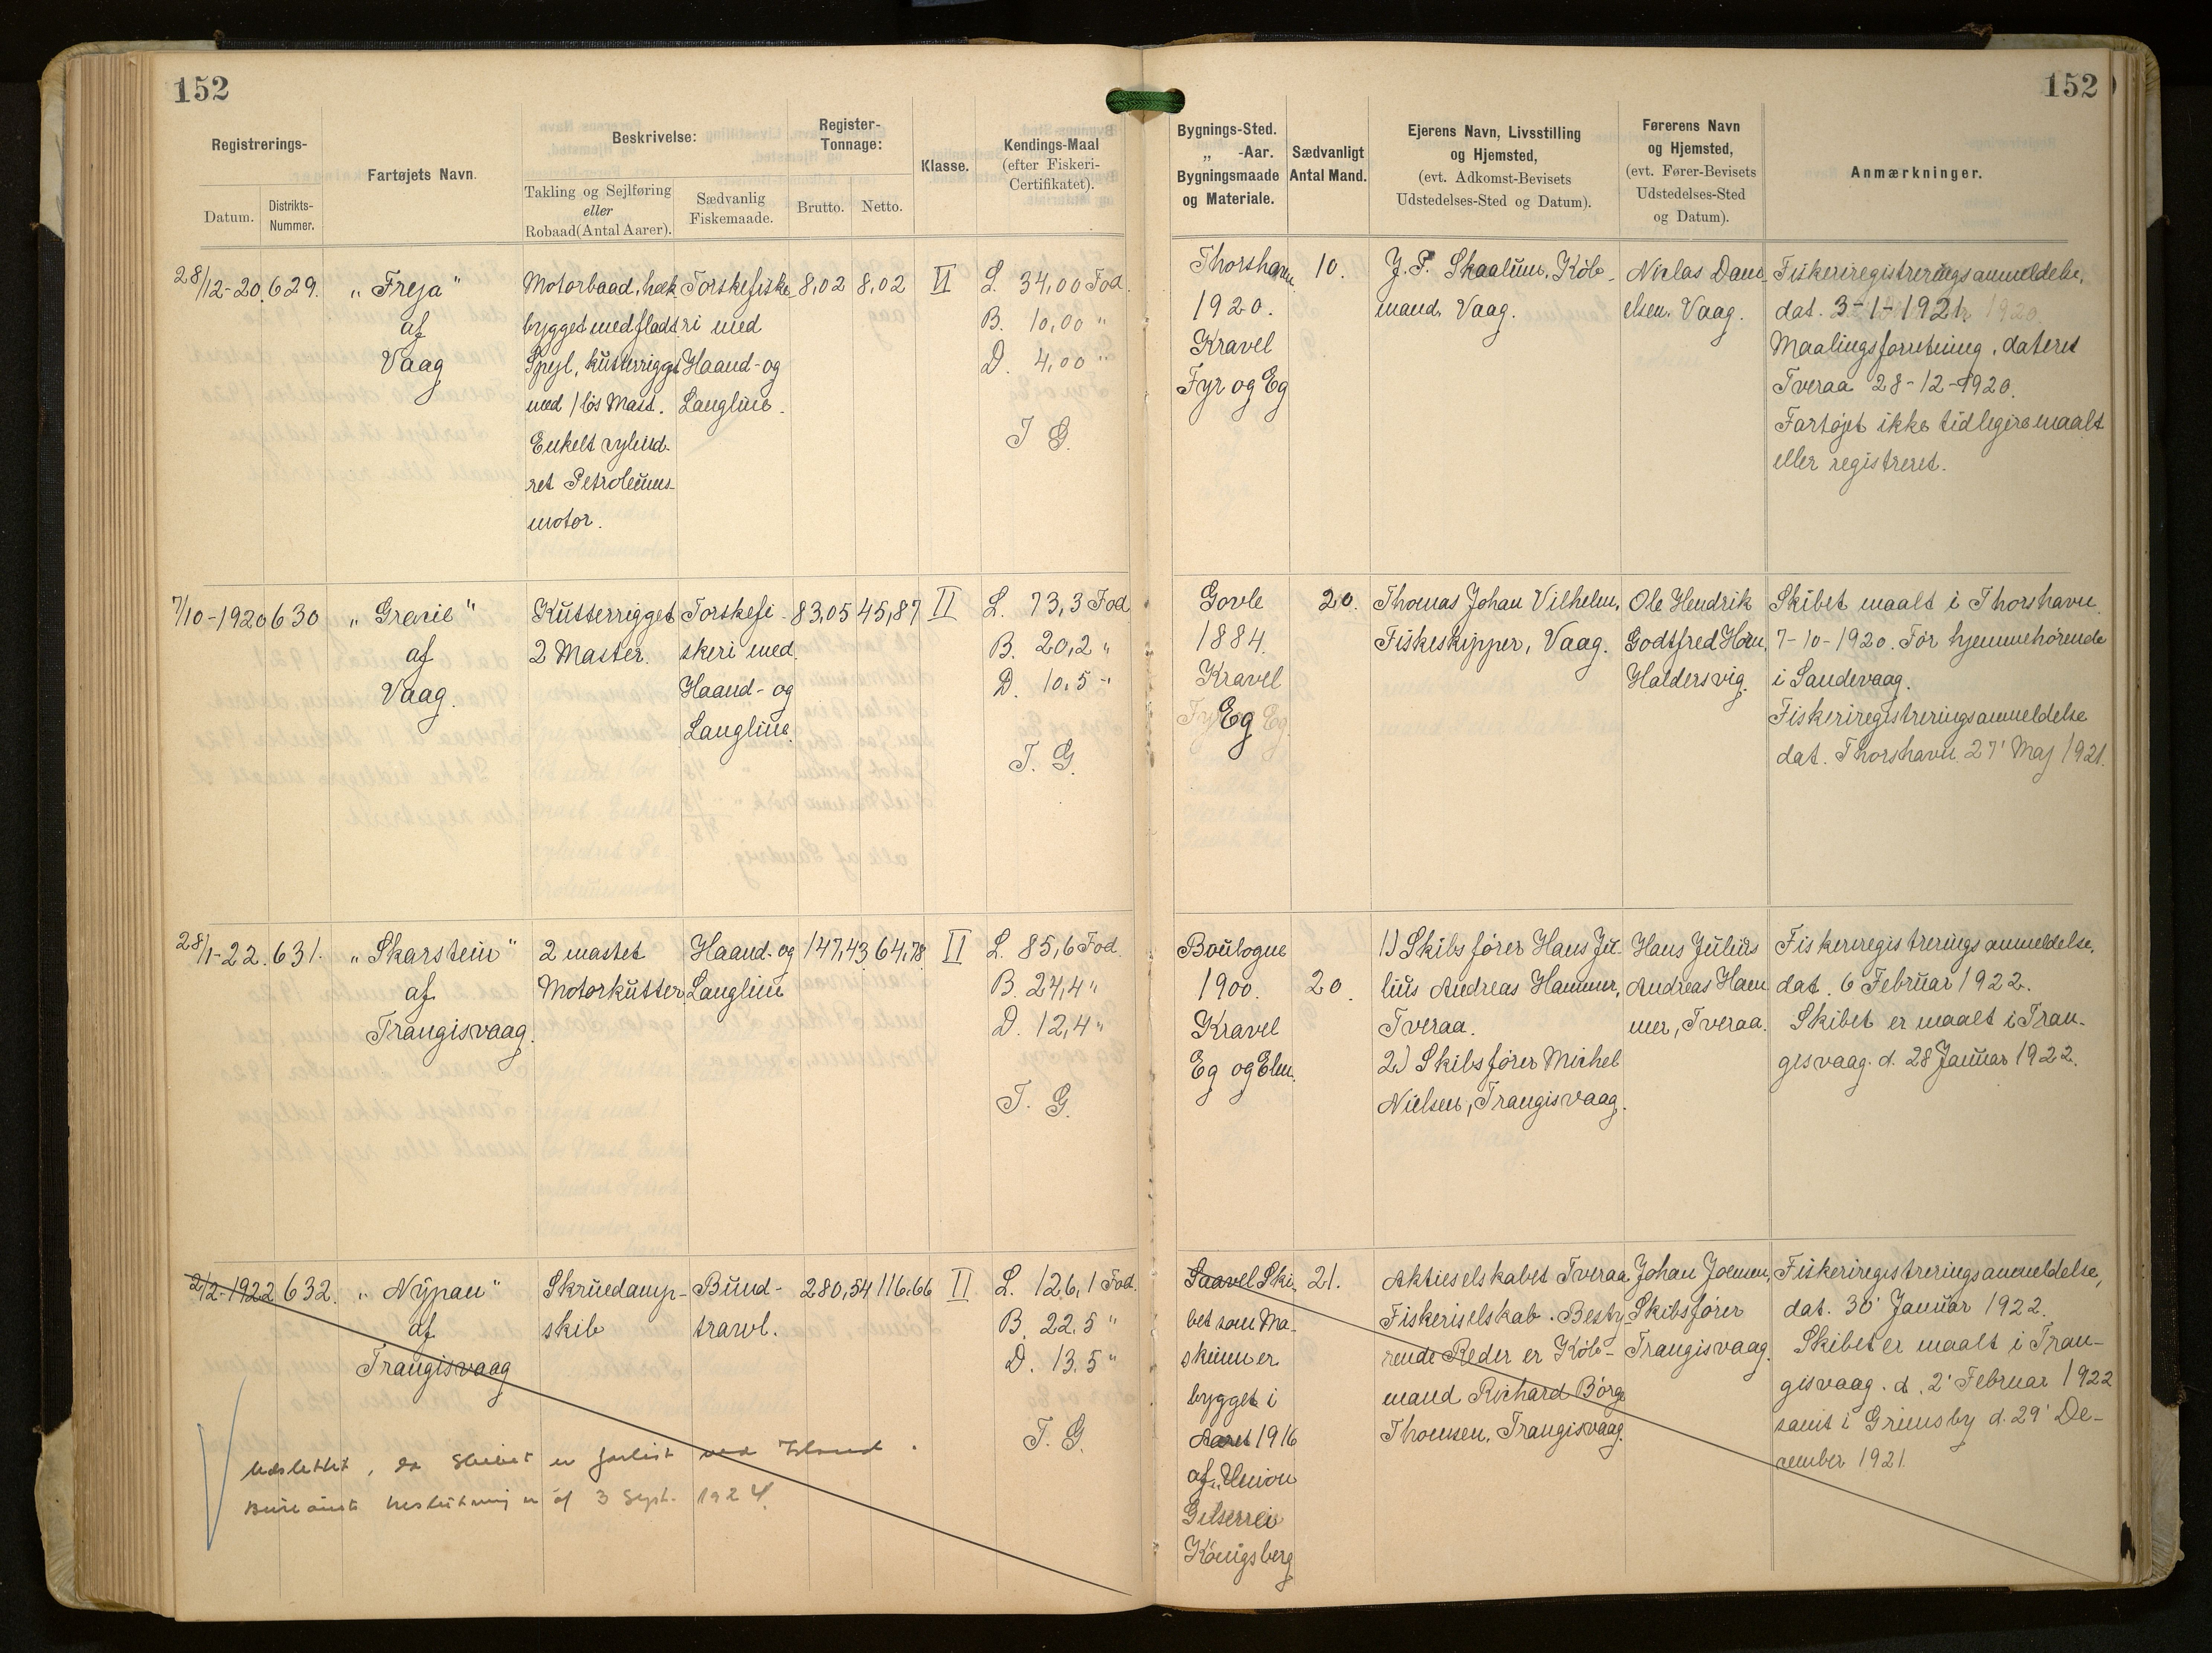 152
152
Registrerings-
Datum.
Distrikts-
Nummer.
Fartøjets Navn.
Beskrivelse:
Takling og Sejlføring
eller
Robaad (Antal Aarer).
Sædvanlig
Fiskemaade.
Register-
Tonnage:
Brutto.
Netto.
Klasse.
Kendings-Maal
(efter Fiskeri-
Certifikatet).
Bygnings-Sted.
„ -Aar.
Bygningsmaade
og Materiale.
Sædvanligt
Antal Mand.
Ejerens Navn, Livsstilling
og Hjemsted,
(evt. Adkomst-Bevisets
Udstedelses-Sted og Datum).
Førerens Navn
og Hjemsted,
(evt. Fører-Bevisets
Udstedelses-Sted
og Datum).
Anmærkninger.
28/12-20.
629.
„Freja"
af
Vaag
Motorbaad, hæk
bygget med fladt
Spejl, kutterrigget
med 1 løs Mast.
Enkelt cylind-
ret Petroleums-
motor.
Torskefiske-
ri med
Haand- og
Langline.
8,02
8,02
VI
L. 34,00 Fod.
B. 10,00 "
D. 4,00 "
T G.
Thorshavn
1920.
Kravel
Fyr og Eg
10.
J. P. Skaalum, Køb-
mand, Vaag.
Niclas Dani-
elsen, Vaag.
Fiskeriregistreringsanmeldelse,
dat. 3-1-1921.
Maalingsforretning, dateret
Tveraa 28-12-1920.
Fartøjet ikke tidligere maalt
eller registreret.
7/10-1920
630
„Gracie"
af
Vaag.
Kutterrigget
2 Master.
Torskefi-
skeri med
Haand- og
Langline.
83,05
45,87
II
L. 73,3 Fod
B. 20,2 "
D. 10,5 "
T. G.
Govle
1884.
Kravel
Eg
20.
Thomas Johan Vilhelm,
Fiskeskipper, Vaag.
Ole Hendrik
Godtfred Horn,
Haldersvig.
Skibet maalt i Thorshavn
7-10-1920. Før hjemmehørende
i Sandevaag.
Fiskeriregistreringsanmeldelse
dat. Thorshavn 27' Maj 1921.
28/1-22.
631.
„Skarstein"
af
Trangisvaag.
2 mastet
Motorkutter.
Haand- og
Langline
147,43
64,78
II
L. 85,6 Fod.
B. 24,4 "
D. 12,4 "
T. G.
Boulogne
1900.
Kravel
Eg og Elm.
20.
1.) Skibsfører Hans Ju-
lius Andreas Hammer,
Tveraa.
2.) Skibsfører Michel
Nielsen, Trangisvaag.
Hans Julius
Andreas Ham
mer, Tveraa.
Fiskeriregistreringsanmeldelse,
dat. 6 Februar 1922.
Skibet er maalt i Tran-
gisvaag. d. 28 Januar 1922.
2/2-1922
632.
„Nypan"
af
Trangisvaag
Skruedamp-
skib
Bund-
trawl.
280,54
116,66
II
L. 126,1 Fod.
B. 22,5 "
D. 13,5 "
T. G.
Saavel Ski-
bet som Ma-
skinen er
bygget i
Aaret 1916
af „Union
Gieserrei
Königsberg
21.
Aktieselskabet Tveraa
Fiskeriselskab. Besty-
rende Reder er Køb-
mand Richard Börge
Thomsen, Trangisvaag.
Johan Joensen,
Skibsfører
Trangisvaag.
Fiskeriregistreringsanmeldelse,
dat. 30' Januar 1922.
Skibet er maalt i Tran-
gisvaag. d. 2' Februar 1922
samt i Grimsby d. 29' De-
cember 1921.
Udslettet, da Skibet er forlist ved Island.
Bureauets beslutning er af 3 Sept. 1924.